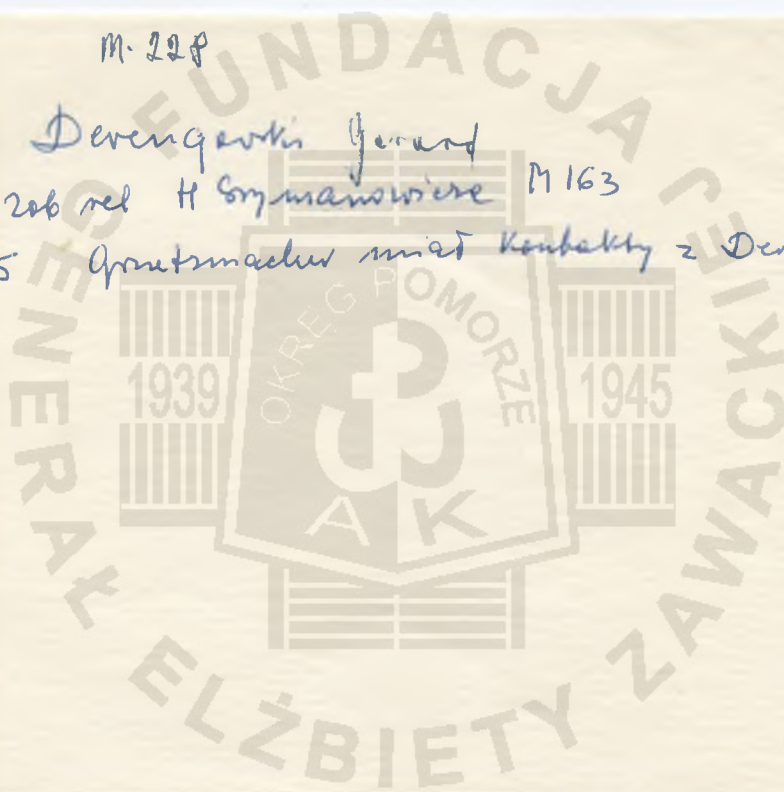 M. 228
Derengowski Gerard
zob rel H Szymanowicza M 163
5 Gruetzmacher miał kontakty z Der
FUNDACJA GENERAŁ ELŻBIETY ZAWACKIEJ
OKRĘG POMORZE
1939 1945
AK